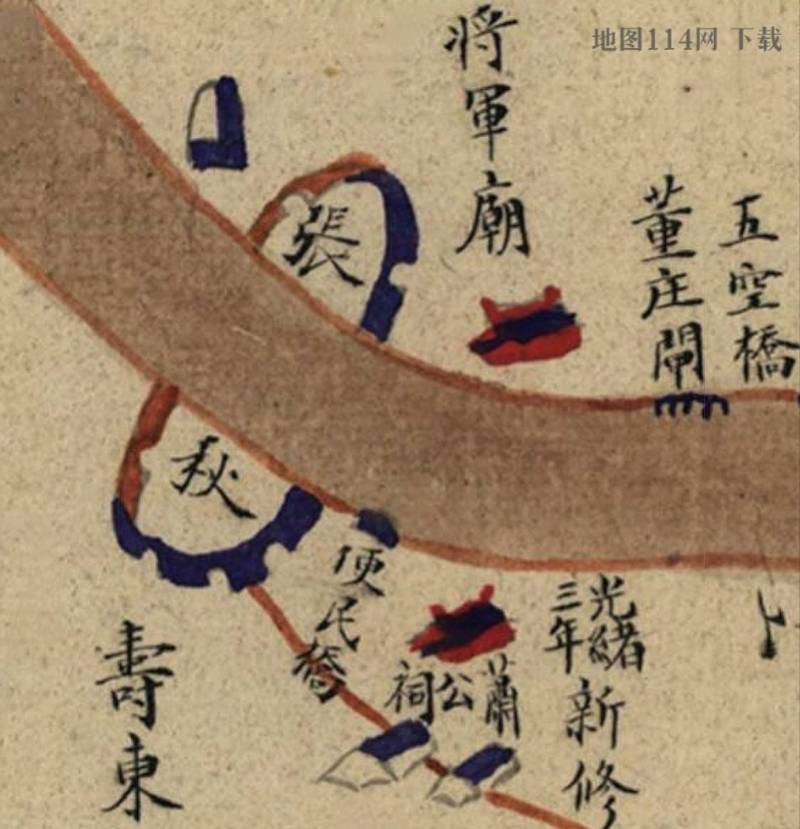 地图114网 下载
五空橋
董庄閘
將軍廟
張
秋
光緒
三年
新修
蕭公祠
便民
壽東